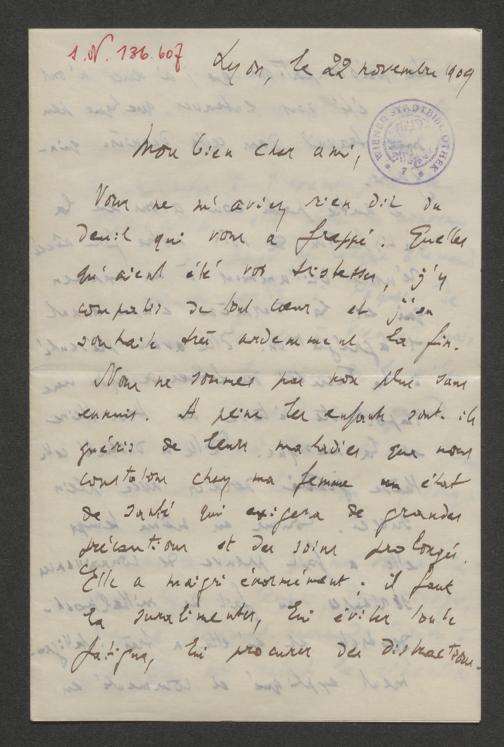 I.N. 136.607
Lyon, le 22 novembre 1909
WIENER STADTBIBLIOTHEK
Mon bien cher ami,
Vous ne m'aviez rien dit du
deuil qui vous a frappé. Quelles
qu'aient été vos tristesses, j'y
compatis de tout cœur et j'en
souhaite très ardemment la fin.
Nous ne sommes pas non plus sans
ennuis. A peine les enfants sont-ils
guéris de leurs maladies que nous
constatons chez ma femme un état
de santé qui exigera de grandes
précautions et des soins prolongés.
Elle a maigri énormément ; il faut
la suralimenter, lui éviter toute
fatigue, lui procurer des distractions.